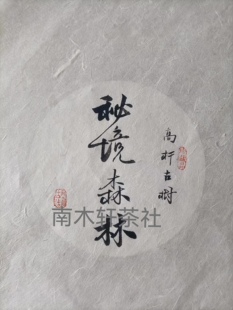 秘境森林
高杆古树
南木轩茶社